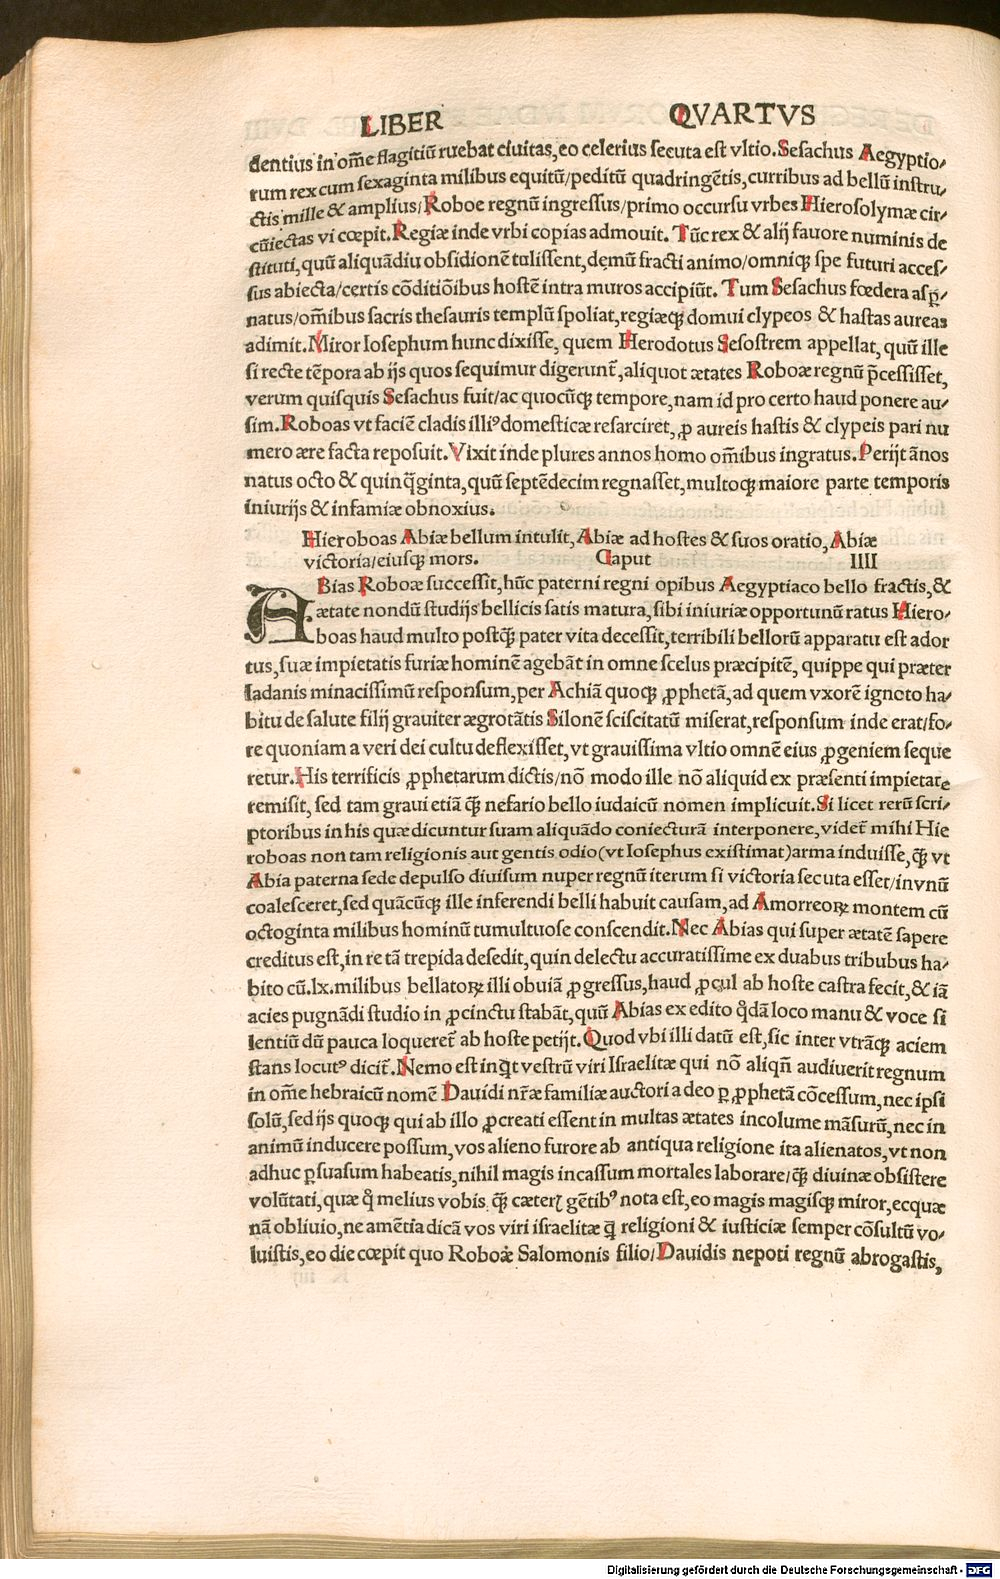 LIBER QVARTVS
dentius in om̄e flagitiū ruebat ciuitas,eo celerius secuta est vltio.Sesachus Aegyptio/
rum rex cum sexaginta milibus equitū/peditū quadringētis,curribus ad bellū instru/
ctis mille & amplius/Roboe regnū ingressus/primo occursu vrbes Hierosolymæ cir/
cūiectas vi cœpit.Regiæ inde vrbi copias admouit. Tūc rex & alij fauore numinis de
stituti,quū aliquādiu obsidionē tulissent,demū fracti animo/omniqꝫ spe futuri acces/
sus abiecta/certis cōditiōibus hostē intra muros accipiūt. Tum Sesachus fœdera asp̄/
natus/om̄ibus sacris thesauris templū spoliat,regiæqꝫ domui clypeos & hastas aureas
adimit.Miror Iosephum hunc dixisse, quem Herodotus Sesostrem appellat, quū ille
si recte tēpora ab ijs quos sequimur digerunt̄,aliquot ætates Roboæ regnū p̄cessisset,
verum quisquis Sesachus fuit/ac quocūqꝫ tempore,nam id pro certo haud ponere au/
sim.Roboas vt faciē cladis illiꝰ domesticæ resarciret, ꝓ aureis hastis & clypeis pari nu
mero ære facta reposuit.Vixit inde plures annos homo om̄ibus ingratus.Perijt ānos
natus octo & quinq̄ginta,quū septēdecim regnasset,multoqꝫ maiore parte temporis
iniurijs & infamiæ obnoxius.
Hieroboas Abiæ bellum intulit, Abiæ ad hostes & suos oratio, Abiæ
victoria/eiusqꝫ mors. Caput IIII
ABias Roboæ successit,hūc paterni regni opibus Aegyptiaco bello fractis,&
ætate nondū studijs bellicis satis matura,sibi iniuriæ opportunū ratus Hiero/
boas haud multo postq̄ꝫ pater vita decessit,terribili bellorū apparatu est ador
tus,suæ impietatis furiæ hominē agebāt in omne scelus præcipitē, quippe qui præter
Iadanis minacissimū responsum,per Achiā quoqꝫ ꝓphetā,ad quem vxorē ignoto ha/
bitu de salute filij grauiter ægrotātis Silonē sciscitatū miserat,responsum inde erat/fo/
re quoniam a veri dei cultu deflexisset,vt grauissima vltio omnē eius ꝓgeniem seque
retur.His terrificis ꝓphetarum dictis/nō modo ille nō aliquid ex præsenti impietate
remisit, sed tam graui etiā q̄ꝫ nefario bello iudaicū nomen implicuit.Si licet rerū scri/
ptoribus in his quæ dicuntur suam aliquādo coniecturā interponere,videt̄ mihi Hie
roboas non tam religionis aut gentis odio(vt Iosephus existimat)arma induisse,q̄ꝫ vt
Abia paterna sede depulso diuisum nuper regnū iterum si victoria secuta esset/in vnū
coalesceret,sed quācūqꝫ ille inferendi belli habuit causam,ad Amorreoꝝ montem cū
octoginta milibus hominū tumultuose conscendit.Nec Abias qui super ætatē sapere
creditus est,in re tā trepida desedit,quin delectu accuratissime ex duabus tribubus ha/
bito cū.lx.milibus bellatoꝝ illi obuiā ꝓgressus,haud ꝓcul ab hoste castra fecit,& iā
acies pugnādi studio in ꝓcinctu stabāt,quū Abias ex edito q̊dā loco manu & voce si
lentiū dū pauca loqueret̄ ab hoste petijt.Quod vbi illi datū est,sic inter vtrāqꝫ aciem
stans locutꝰ dicit̄.Nemo est inq̄t vestrū viri Israelitæ qui nō aliqn̄ audiuerit regnum
in om̄e hebraicū nomē Dauidi nr̄æ familiæ auctori a deo ꝑ ꝓphetā cōcessum,nec ipsi
solū,sed ijs quoqꝫ qui ab illo ꝓcreati essent in multas ætates incolume māsurū,nec in
animū inducere possum,vos alieno furore ab antiqua religione ita alienatos,vt non
adhuc ꝑsuasum habeatis,nihil magis incassum mortales laborare/q̄ꝫ diuinæ obsistere
volūtati,quæ q̊ melius vobis q̄ꝫ cæteri gētibꝰ nota est,eo magis magisqꝫ miror,ecquæ
nā obliuio,ne amētia dicā vos viri israelitæ q̄ religioni & iusticiæ semper cōsultū vo/
luistis,eo die cœpit quo Roboæ Salomonis filio/Dauidis nepoti regnū abrogastis,
Digitalisierung gefördert durch die Deutsche Forschungsgemeinschaft - DFG